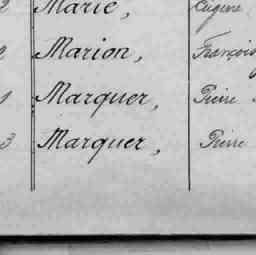 2 Marie, Eugène
2 Marion, François
1 Marquer, Pierre
3 Marquer, Pierre